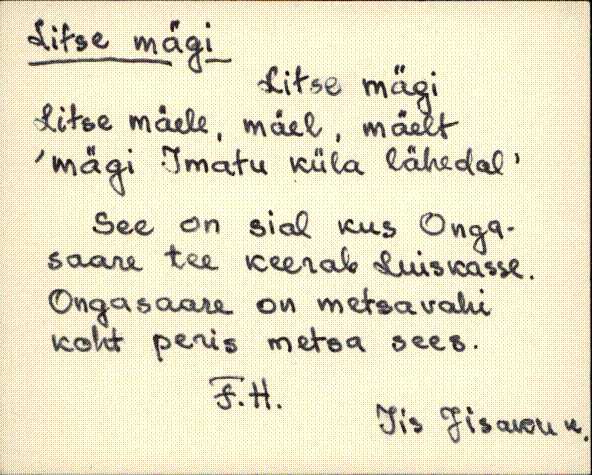 Litse mägi
Litse mägi
Litse mäele, mäel, mäelt
'mägi Imatu küla lähedal'
See on sial kus Onga-
saare tee keerab Luiskasse.
Ongasaare on metsavahi
koht peris metsa sees.
F.H.
Iis Iisaku k.